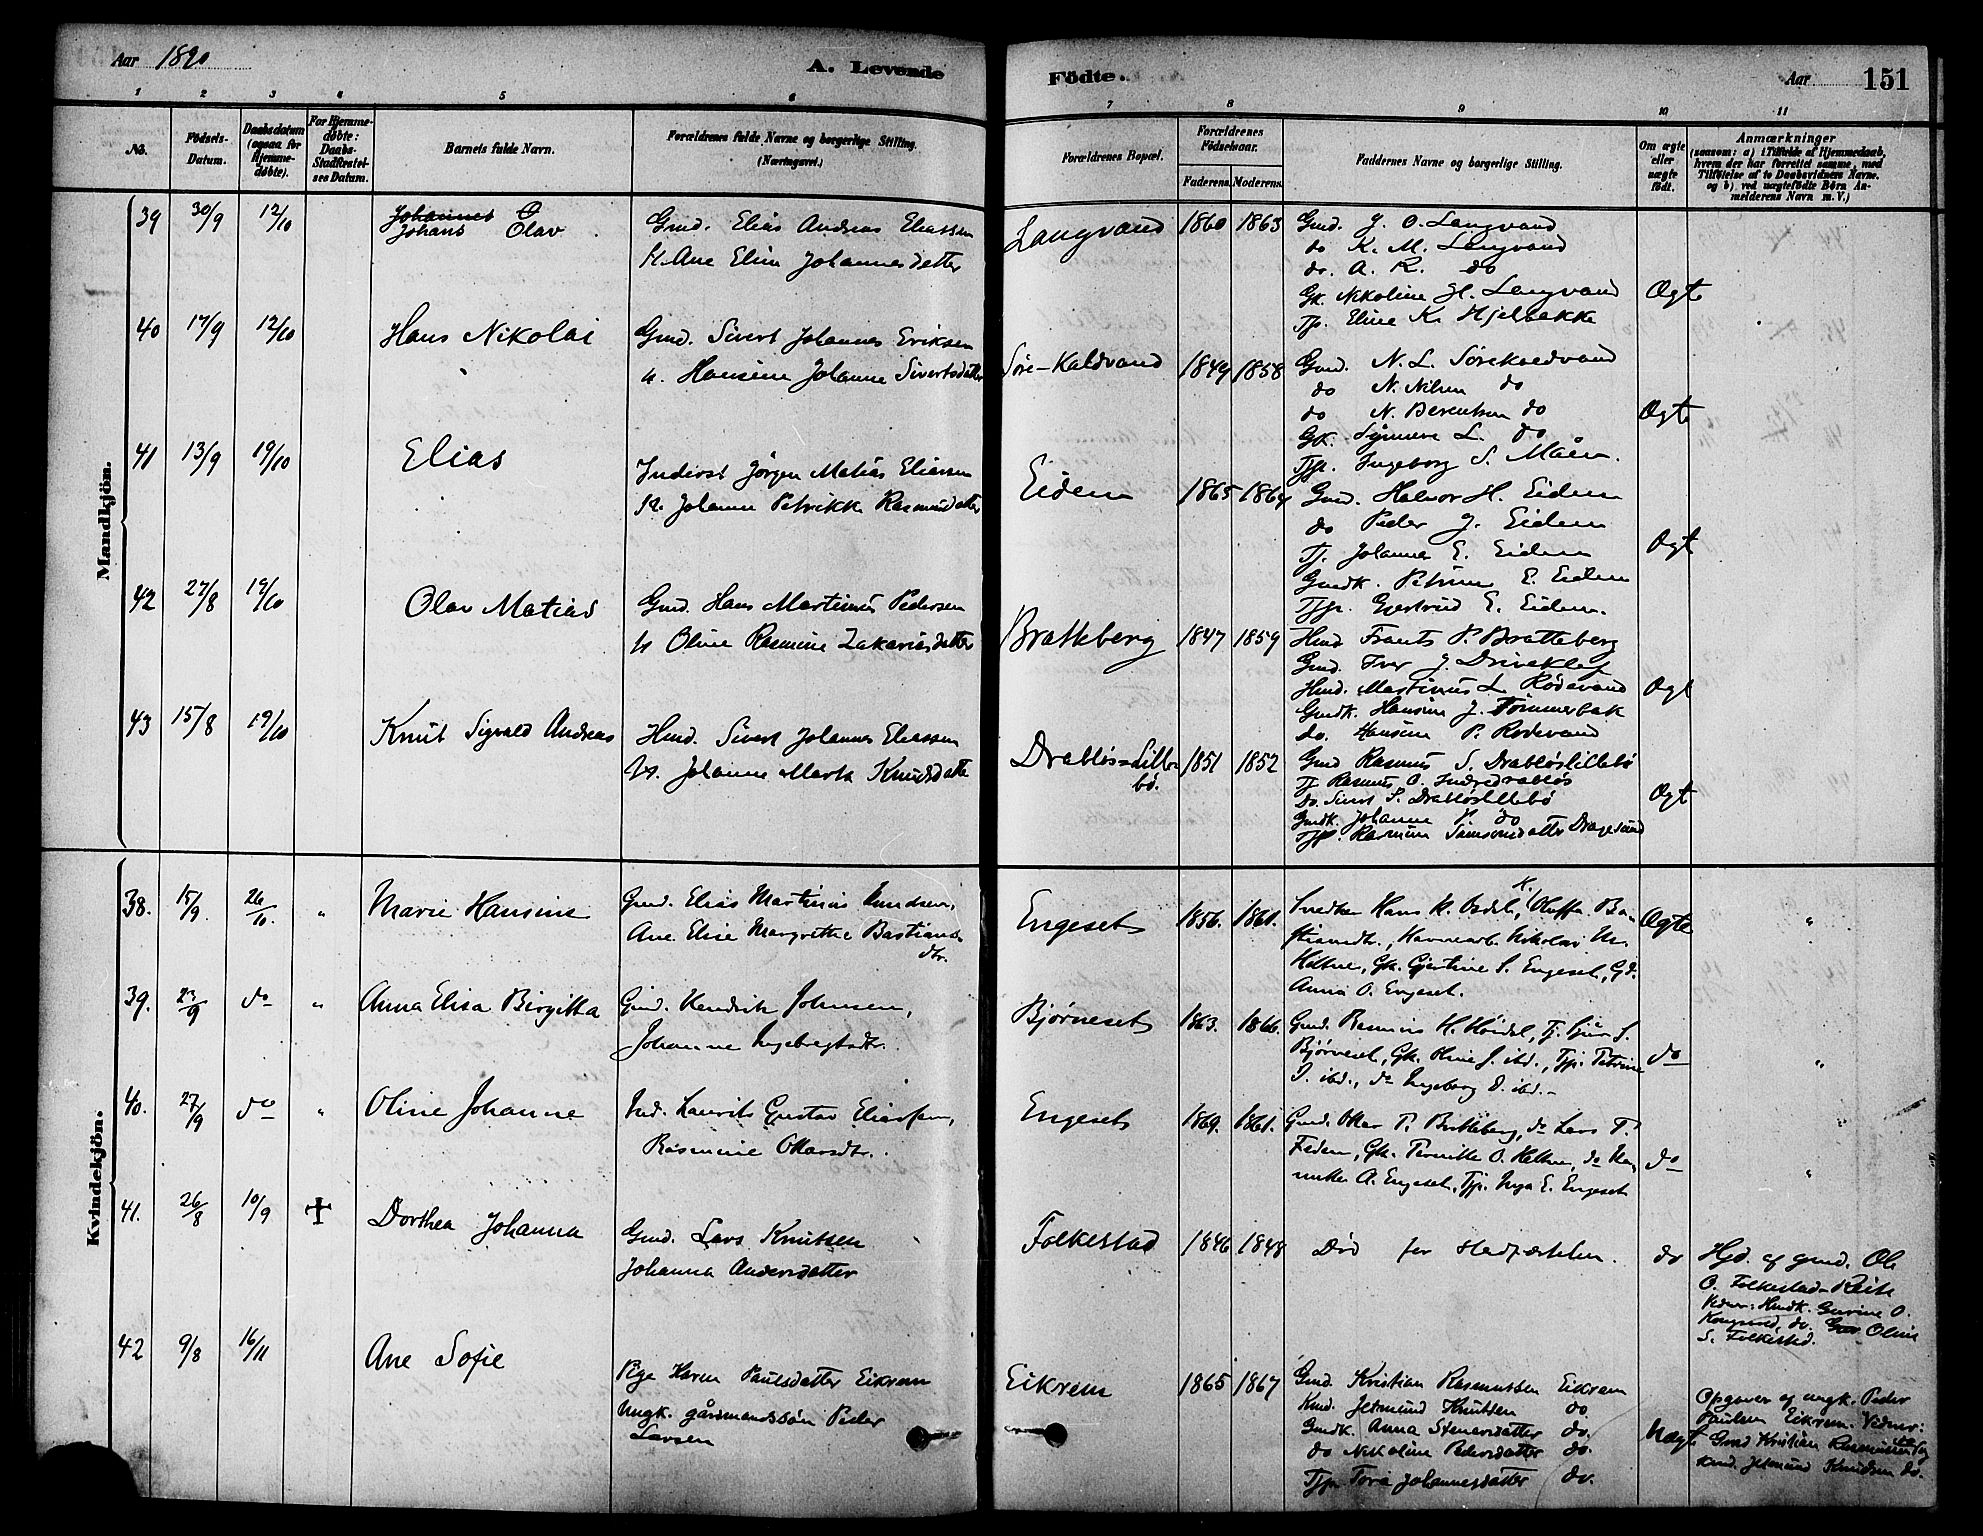 Aar 1890
A. Levende
Födte.
Aar
151
1 2 3 4 5 6 7 8 9 10 11
No.
Födsels-Datum.
Daabsdatum (ogsaa for Hjemmedøbte).
For Hjemmedøbte: Daabs-Stadfæstelses Datum.
Barnets fulde Navn.
Forældrenes fulde Navne og borgerlige Stilling. (Næringsvei.)
Forældrenes Bopæl.
Forældrenes Födselsaar.
Faderens. Moderens.
Faddernes Navne og borgerlige Stilling.
Om ægte eller uægte født.
Anmærkninger
(saasom: a) i Tilfælde af Hjemmedaab, hvem der har forrettet samme, med Tilföielse af to Daabsvidners Navne. og b) ved uægtefödte Börn Anmelderens Navn m. V.)
Mandkjön.
39 30/9 12/10
Johannes
Johans Olav
Gmd. Elias Andreas Eliassen
H. Ane Elina Johannesdatter
Langvand 1860 1863
Gmd. J. O. Langvand
do K. M. Langvand
do. A. R. do
Gk. Nikoline H. Langvand
Tp. Eline K. Hjelbakke
Ægte
40 17/9 12/10
Hans Nikolai
Gmd. Sivert Johannes Eriksen
H. Hansine Johanne Sivertsdatter
Søre-Kaldvand 1849 1858
Gmd. N. L. Sørekaldvand
do N. Nilsen do
do N. Berentsen do
Gk. Synneve L. do
Tp. Ingeborg S. Måen.
Ægte
41 13/9 19/10
Elias
Inderst Jørgen Matias Eliassen
H. Johanne Petrikke Rasmusdatter
Eidem 1865 1864
Gmd. Halvor H. Eidem
do Peder J. Eidem
Tj. Johannes E. Eidem
Gmdk. Petrine E. Eidem
Tp. Gjertrud E. Eidem.
Ægt
42 27/8 19/10
Olav Matias
Gmd. Hans Martinus Pedersen
H Oline Rasmine Zakariasdatter
Bratteberg 1847 1859
Hmd Frants P. Bratteberg
Gmd. Iver J. Driveklep
Hmd. Martinus L. Rødevand
Gmdk. Hansine J. Tømmerbak
do. Hansine P. Rødevand
Ægt
43 15/8 19/10
Knut Sigvald Andreas
Hmd. Sivert Johannes Eliassen
H. Johanne Marta Knudsdatte
Drabløs-Lille-
bö. 1851 1852
Gmd Rasmus S. Drabløslillebö
Tj Rasmus O. Indredrabløs
do. Sivert S. Drabløslillebö
Gmdk. Johanne P. do
Tp. Rasmine Simonsdatter Dragesund
Ægt
Kvindekjön.
38. 15/9. 26/10 "
Marie Hansine
Gmd. Elias Martinus Knudsen,
Ane Elise Margrethe Bastians-
dtr.
Engeset 1856. 1861.
Snedker Hans K. Osdal, K. Oluffa Ba-
stiansdtr., Havnearb. Nikolai M.
Heltne, Gk. Gjertine S. Engeset, Gd.
Anna O. Engeset.
Ægte "
39. 23/9 do "
Anna Elisa Birgitta
Gmd. Hendrik Johnsen,
Johanne Ingebregtsdtr.
Bjørneset 1863. 1866.
Gmd. Rasmus H. Høidal, Tj. Sjur S.
Bjørneset, Gk. Oline J. ibd., Tp. Petrine
D. ibd., do Ingeborg D. ibd.
do "
40. 27/9 do "
Oline Johanne
Ind. Laurits Gustav Eliassen,
Rasmine Ottarsdtr.
Engeset 1869. 1861.
Gmd. Ottar P. Bratteberg, do Lars T.
Fedem, Gk. Pernille O. Heltne, do
A. Engeset, Tp. Inga E. Engeset
do "
41. 26/8 10/9 ✝
Dorthea Johanna
Gmd. Lars Knutsen
Johanna Andersdatter
Folkestad 1846 1848
Död för Stadfæstelsen.
do
Hjd. af gmd. Ole
O. Folkestad-Reite
Vidner: Hmdk. Gurine O.
Kongsvol, do. Oline
S. Folkestad.
42 9/8 16/11
Ane Sofie
Pige Karen Paulsdatter Eikrem
Ungk. gårdmandssön Peder
Larsen
Eikrem 1865 1867
Gmd. Kristian Rasmussen Eikrem
Kmd. Jetmund Knutsen do
Gmdk. Anna Steversdatter do.
do Nikoline Pedersdatter do.
Tp. Tora Johannesdatter do.
Uægt
Opgiver af ungk. Peder
Paulsen Eikrem. Vidner:
Gmd Kristian Rasmussen og
Kmd. Jetmund Knudsen do.